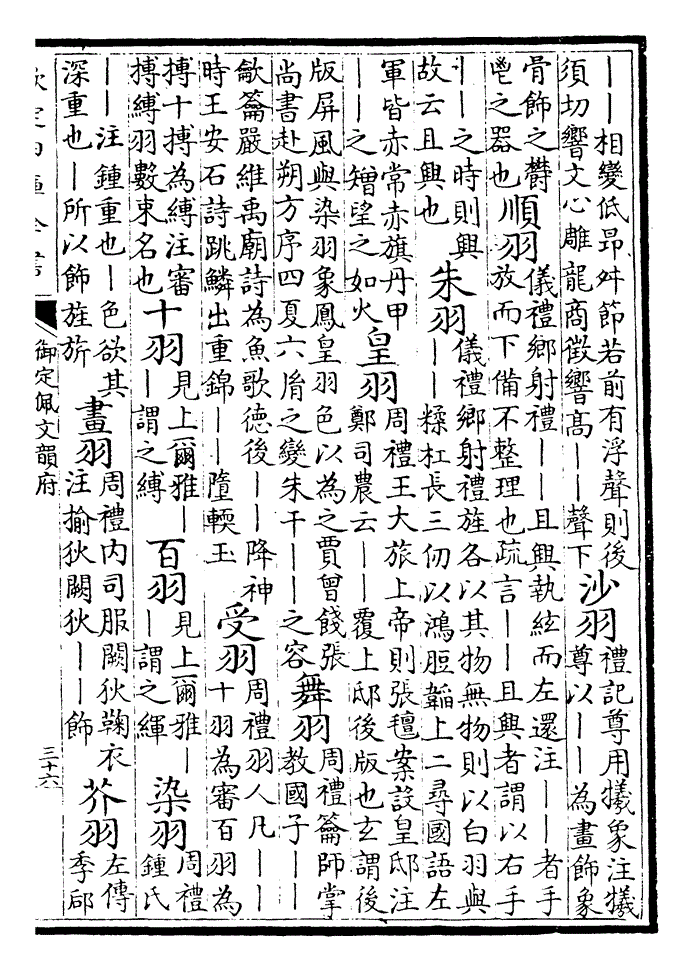 丨丨相變低昂舛節若前有浮聲則後須切響文心雕龍商徵響高丨丨聲下沙羽禮記尊用犧象注犧尊以丨丨為畫飾象
骨飾之鬱鬯之器也順羽儀禮鄉射禮丨丨且興執絃而左還注丨丨者手放而下備不整理也疏言丨丨且興者謂以右手
丨丨之時則興故云且興也朱羽儀禮鄉射禮旌各以其物無物則以白羽與丨丨糅杠長三仞以鴻脰韜上二尋國語左
軍皆赤常赤旗丹甲丨丨之矰望之如火皇羽周禮王大旅上帝則張氊案設皇邸注鄭司農云丨丨覆上邸後版也玄謂後
版屏風與染羽象鳳皇羽色以為之賈曾餞張尚書赴朔方序四夏六脩之變朱干丨丨之容舞羽周禮籥師掌教國子丨丨
龡籥嚴維禹廟詩為魚歌德後丨丨降神時王安石詩跳鱗出重錦丨丨墮輭玉受羽周禮羽人凡丨丨十羽為審百羽為
摶十摶為縛注審摶縛羽數束名也十羽見上爾雅丨丨謂之縛百羽見上爾雅丨丨謂之緷染羽周禮鍾氏
丨丨注鍾重也丨色欲其深重也丨所以飾旌旂畫羽周禮内司服闕狄鞠衣注揄狄闕狄丨丨飾芥羽左傳季郈
欽定四庫全書
御定佩文韻府
三十六